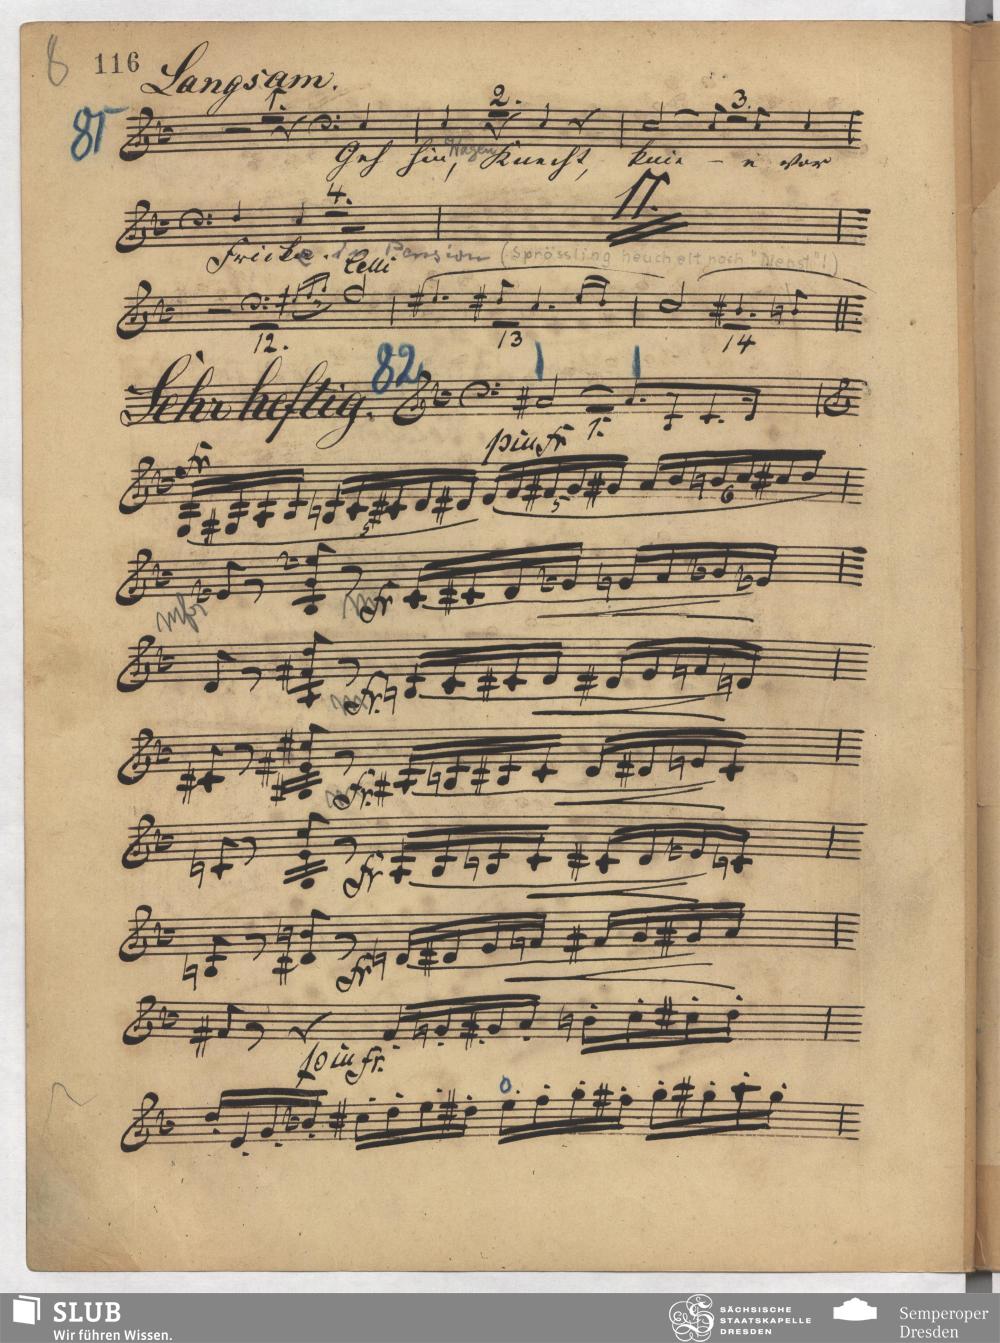 8 116 Langsam.
81 1. 2. 3.
Geh hin, Knecht, knie - e vor
Hagen
4. 11.
Fricka. in Pension (Sprössling heuchelt noch "Dienst"!)
Celli
12. 13 14
Sehr heftig. 82
più fr 1.
fr
5 5 6
fr
fr.
fr.
fr
fr.
più fr.
0.
SLUB
Wir führen Wissen.
SÄCHSISCHE
STAATSKAPELLE
DRESDEN
Semperoper
Dresden